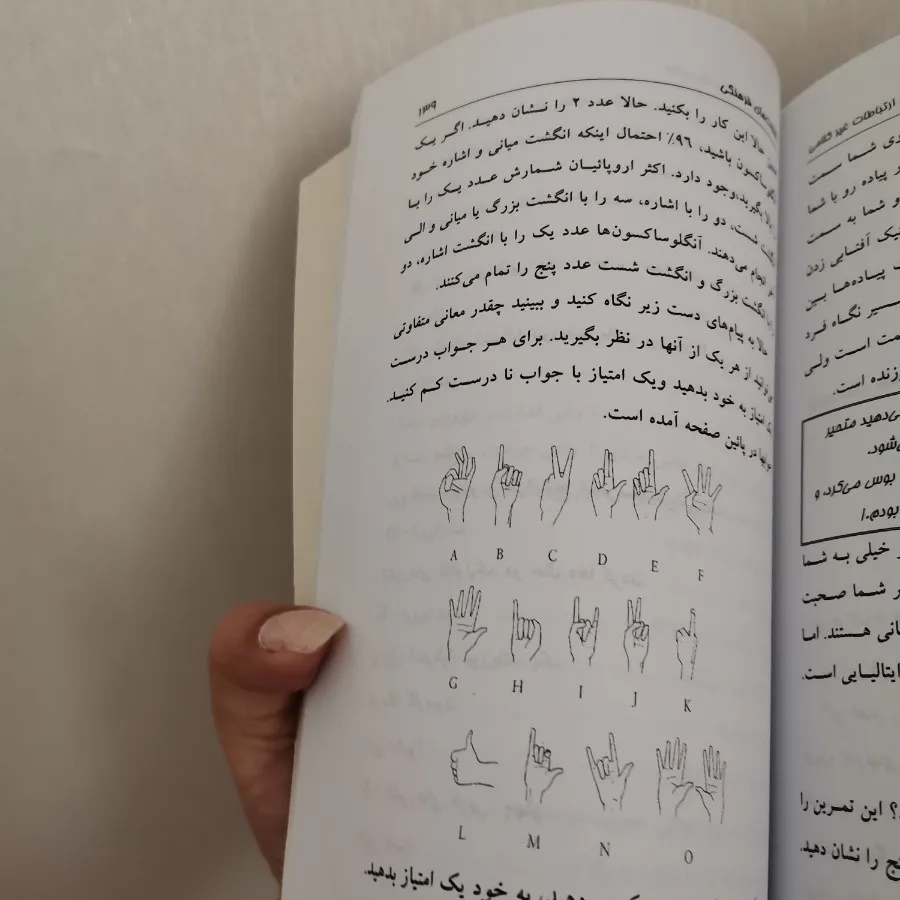 ۱۳۹
حالا این کار را بکنید. حالا عدد ۲ را نشان دهید. اگر یک
باشید، ۹۶٪ احتمال اینکه انگشت میانی و اشاره خود
بگیرید، وجود دارد. اکثر اروپائیان شمارش عدد یک را با
شست، دو را با اشاره، سه را با انگشت بزرگ یا میانی و الی
انجام می‌دهند. آنگلوساکسون‌ها عدد یک را با انگشت اشاره، دو
انگشت بزرگ و انگشت شست عدد پنج را تمام می‌کنند.
حالا به پیام‌های دست زیر نگاه کنید و ببینید چقدر معانی متفاوتی
از هر یک از آنها در نظر بگیرید. برای هر جواب درست
یک امتیاز به خود بدهید ویک امتیاز با جواب نا درست کم کنید.
در پائین صفحه آمده است.
A B C D E F
G H I J K
L M N O
به خود یک امتیاز بدهید.
ارتباطات غیر کلامی
شما سمت
پیاده رو با شما
و شما به سمت
آفتابی زدن
پیاده‌ها بین
نگاه فرد
است ولی
است.
می‌دهید متمیر
می‌شود.
بوس می‌کرد، و
بودم.!
خیلی به شما
شما صحبت
هستند. اما
ایتالیایی است.
این تمرین را
را نشان دهید.